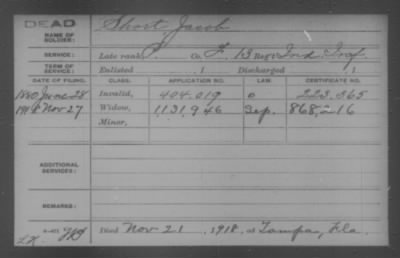 DEAD
NAME OF SOLDIER: Short, Jacob
SERVICE: Late rank P. Co. F, 13 Reg't Ind. Inf.
TERM OF SERVICE: Enlisted , 1 Discharged , 1
DATE OF FILING. CLASS. APPLICATION NO. LAW. CERTIFICATE NO.
1880 June 28 Invalid, 404.019 o 223.365
1918 Nov 27 Widow, 1,131,946 Sep. 868,216
Minor,
ADDITIONAL SERVICES:
REMARKS:
Died Nov 21, 1918, at Tampa, Fla.